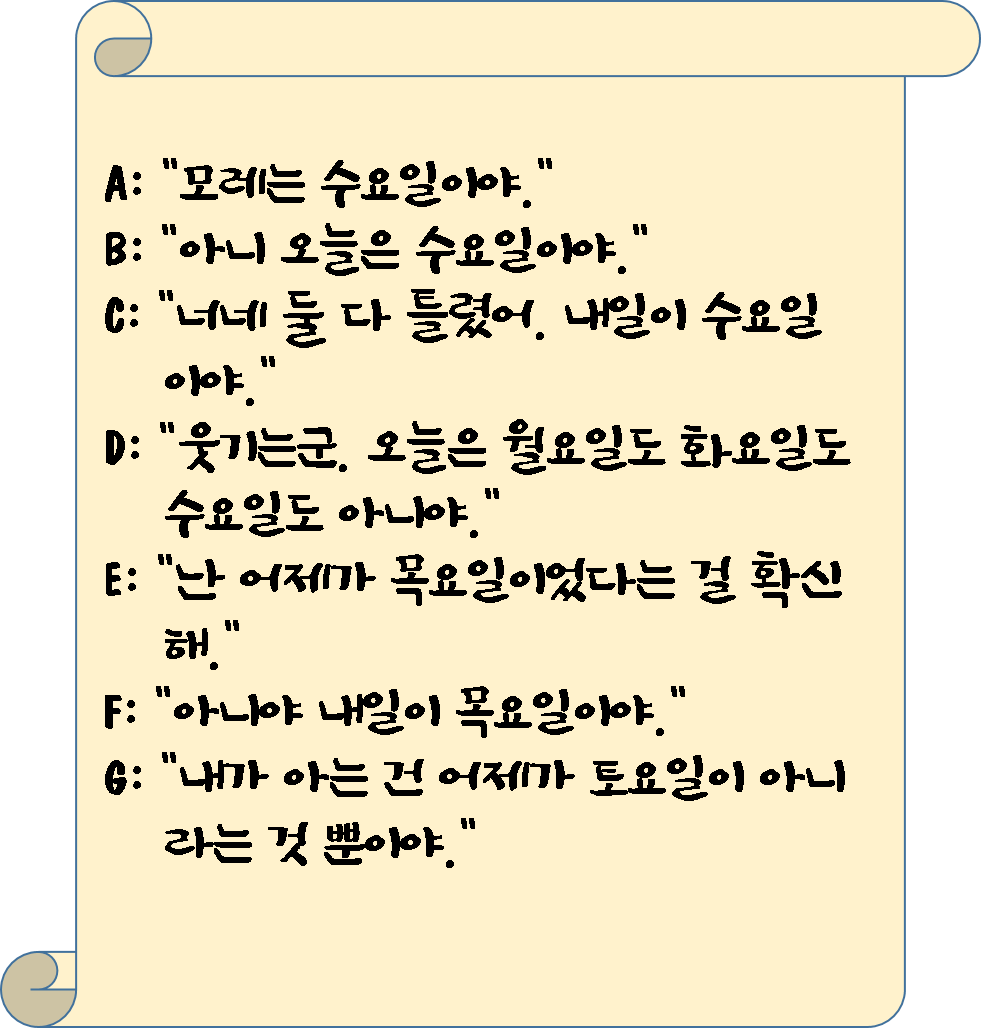 A: "모레는 수요일이야."
B: "아니 오늘은 수요일이야."
C: "너네 둘 다 틀렸어. 내일이 수요일
이야."
D: "웃기는군. 오늘은 월요일도 화요일도
수요일도 아니야."
E: "난 어제가 목요일이었다는 걸 확신
해."
F: "아니야 내일이 목요일이야."
G: "내가 아는 건 어제가 토요일이 아니
라는 것 뿐이야."